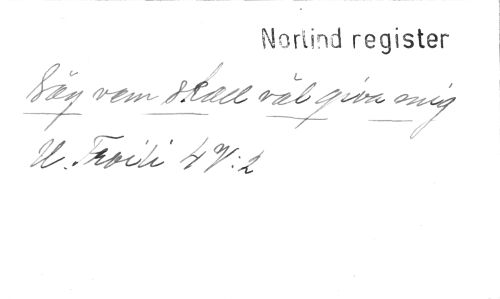 Norlind register
Säg vem skall väl giva mig
U. Troili 4 V:2